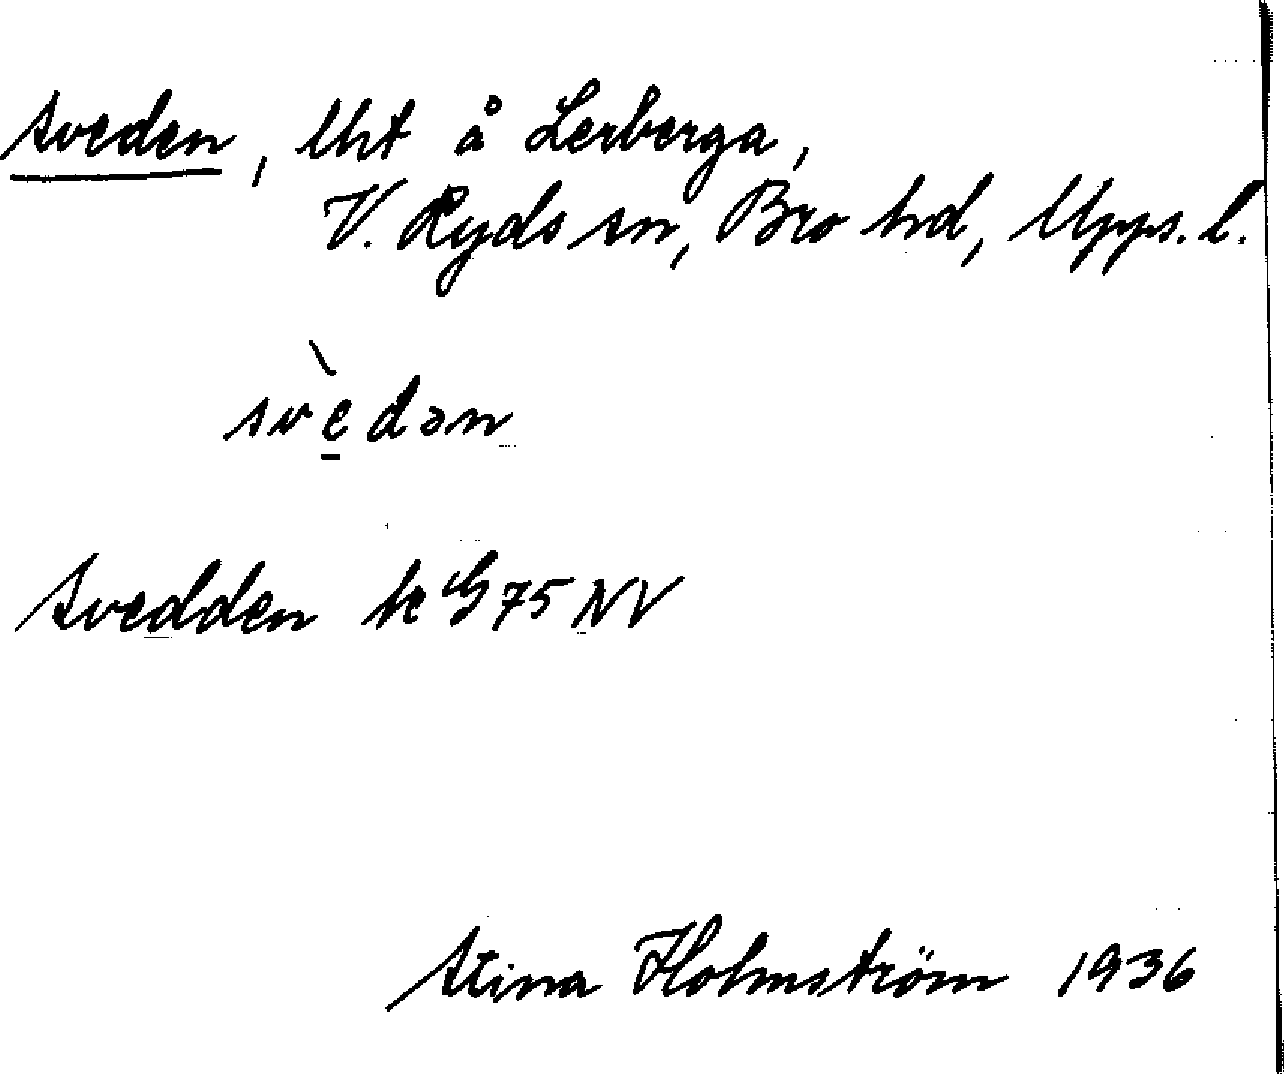 Sveden, Uht å Lerberga,
V. Ryds sn, Bro hd, Upps. l.
svèdən
Svedden hG75NV
Stina Holmström 1936